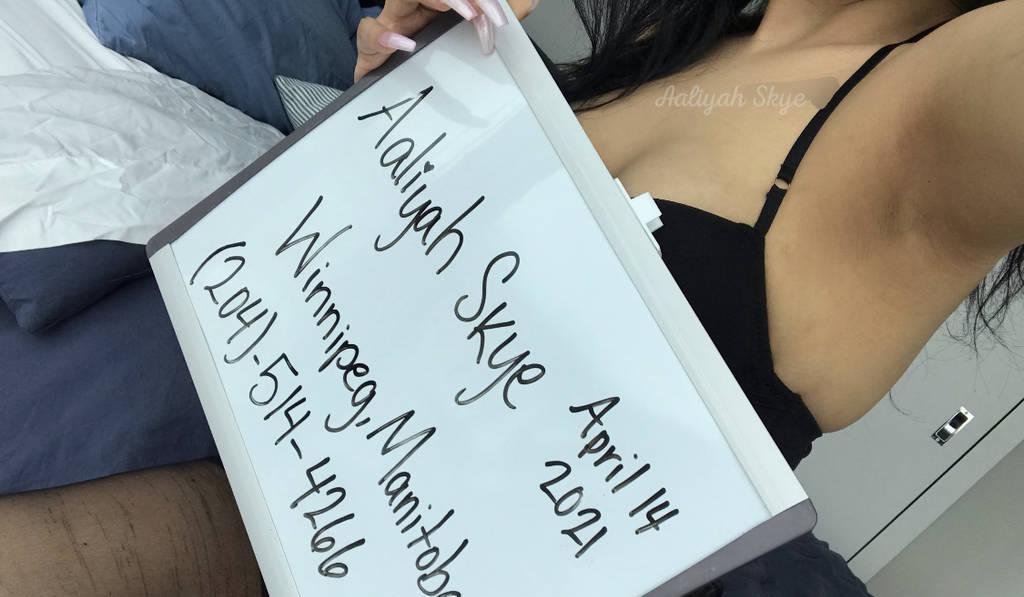 Aaliyah Skye
April 14
2021
Winnipeg, Manitoba
(204)-514-4266
Aaliyah Skye